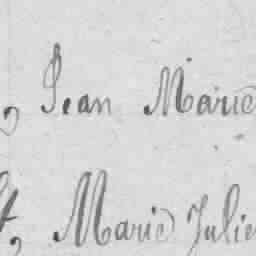 , Jean Marie
t, Marie Julie